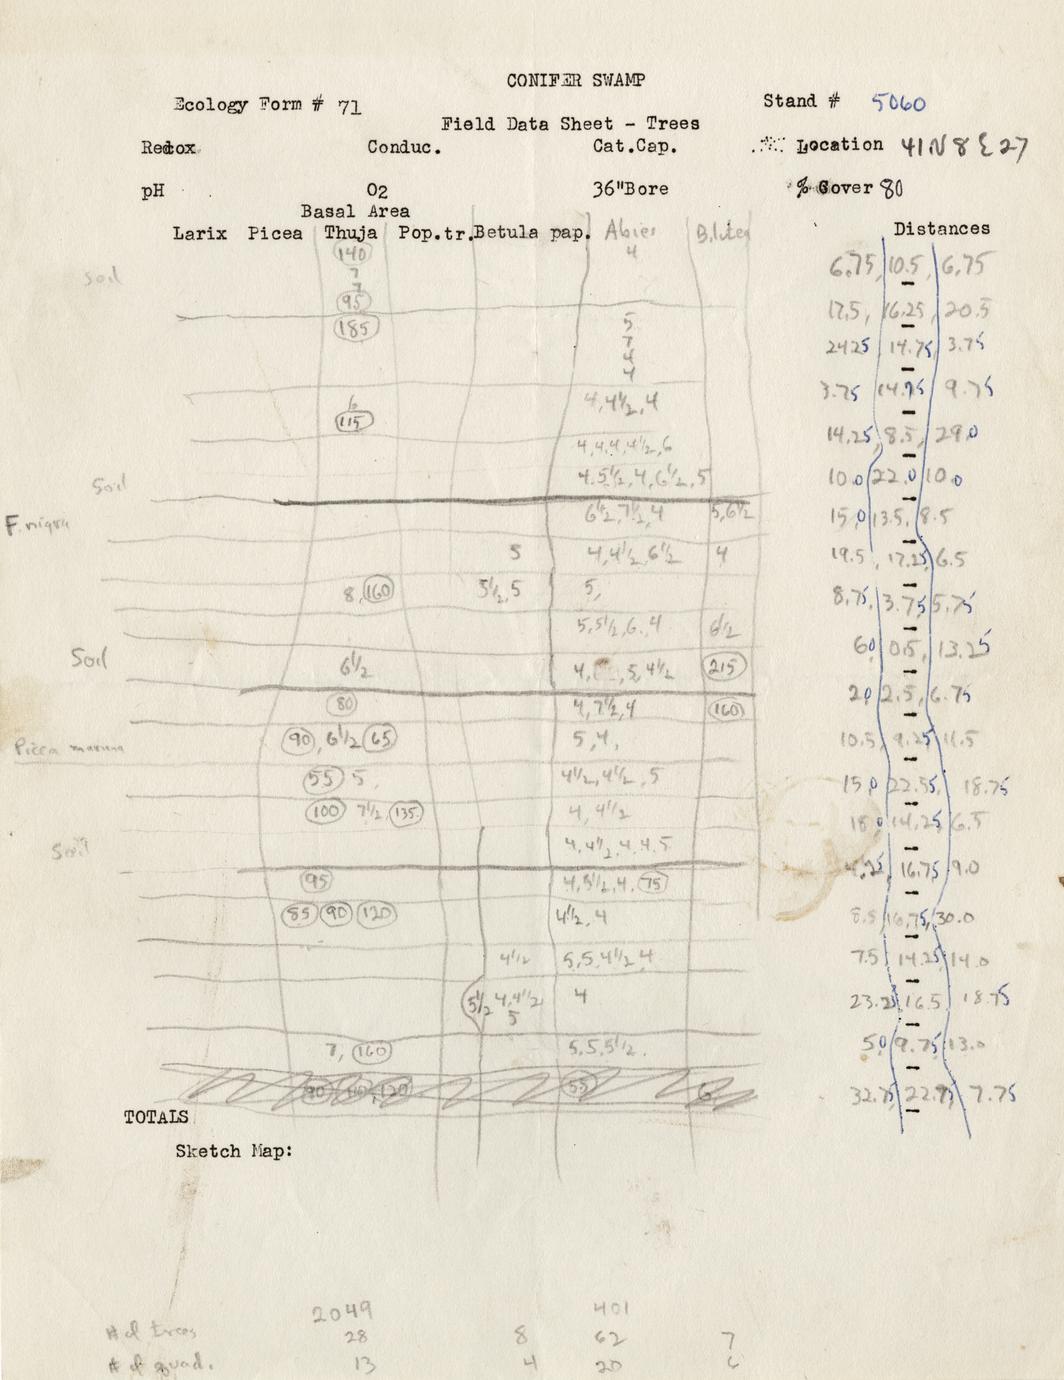 CONIFER SWAMP
Ecology Form # 71 Stand # 5060
Field Data Sheet - Trees
Redox Conduc. Cat.Cap. Location 41N 8 E 27
pH O2 36"Bore % Cover 80
Basal Area
Larix Picea Thuja Pop.tr. Betula pap. Abies B.lutea Distances
140 4
soil 7 6.75, 10.5, 6.75
7
95
185 5 17.5, 16.25, 20.5
7
4 24.25 14.75 3.75
4
6 4, 4½, 4 3.75 14.75 9.75
115
4,4,4,4½,6 14.25, 8.5, 29.0
Soil 4,5½,4,6½,5 10.0 22.0 10.0
F. nigra 6½,7½,4 5,6½ 15.0 13.5, 8.5
5 4,4½,6½ 4 19.5, 17.25, 6.5
8, 160 5½,5 5, 8.75, 3.75, 5.75
5,5½,6,4 6½
Soil 6½ 4, 5, 4½ 215 6.0 0.5, 13.25
80 4,7½,4 160 2.0 2.5, 6.75
Picea mariana 90, 6½ 65 5,4, 10.5, 9.25 11.5
55 5, 4½,4½,5 15.0 18.75
100 7½, 135 4, 4½ 18.0 14.25 6.5
Soil 4,4½,4,4,5
95 4,5½,4, 75 4.25, 16.75 9.0
85 90 120 4½,4 8.5 30.0
4½ 5,5,4½,4 7.5 14.25 14.0
5½ 4,4½ 4 23.25 16.5 18.75
5
7, 160 5,5,5½. 5.0 9.75 13.0
120 55 6 32.75 22.75 7.75
TOTALS
Sketch Map:
2049 401
# of trees 28 8 62 7
# of quad. 13 4 20 6